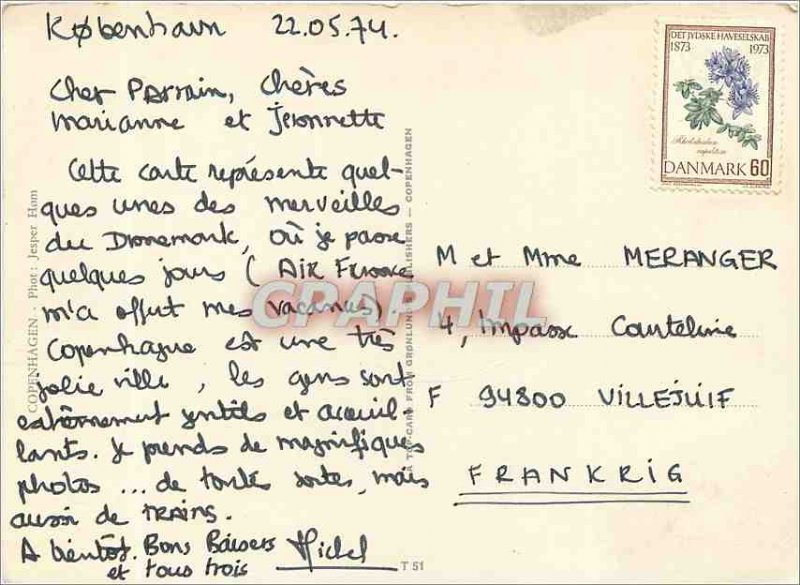 København 22.05.74.
Cher Parrain, Chères
Marianne et Jeannette
Cette carte représente quel-
ques unes des merveilles
du Danemark, où je passe
quelques jours (AIR France
m'a offert mes vacances).
Copenhague est une très
jolie ville, les gens sont
extrêmement gentils et accueil-
lants. Je prends de magnifiques
photos ... de toutes sortes, mais
aussi de TRAINS.
A bientôt. Bons Baisers
et tous trois Michel
DET JYDSKE HAVESELSKAB
1873 1973
Rhododendron
DANMARK 60
M et Mme MERANGER
4, Impasse Courteline
F 94800 VILLEJUIF
FRANKRIG
COPENHAGEN - Phot: Jesper Høm
A TOP-CARD FROM GRØNLUND PUBLISHERS — COPENHAGEN
T 51
CPAPHIL